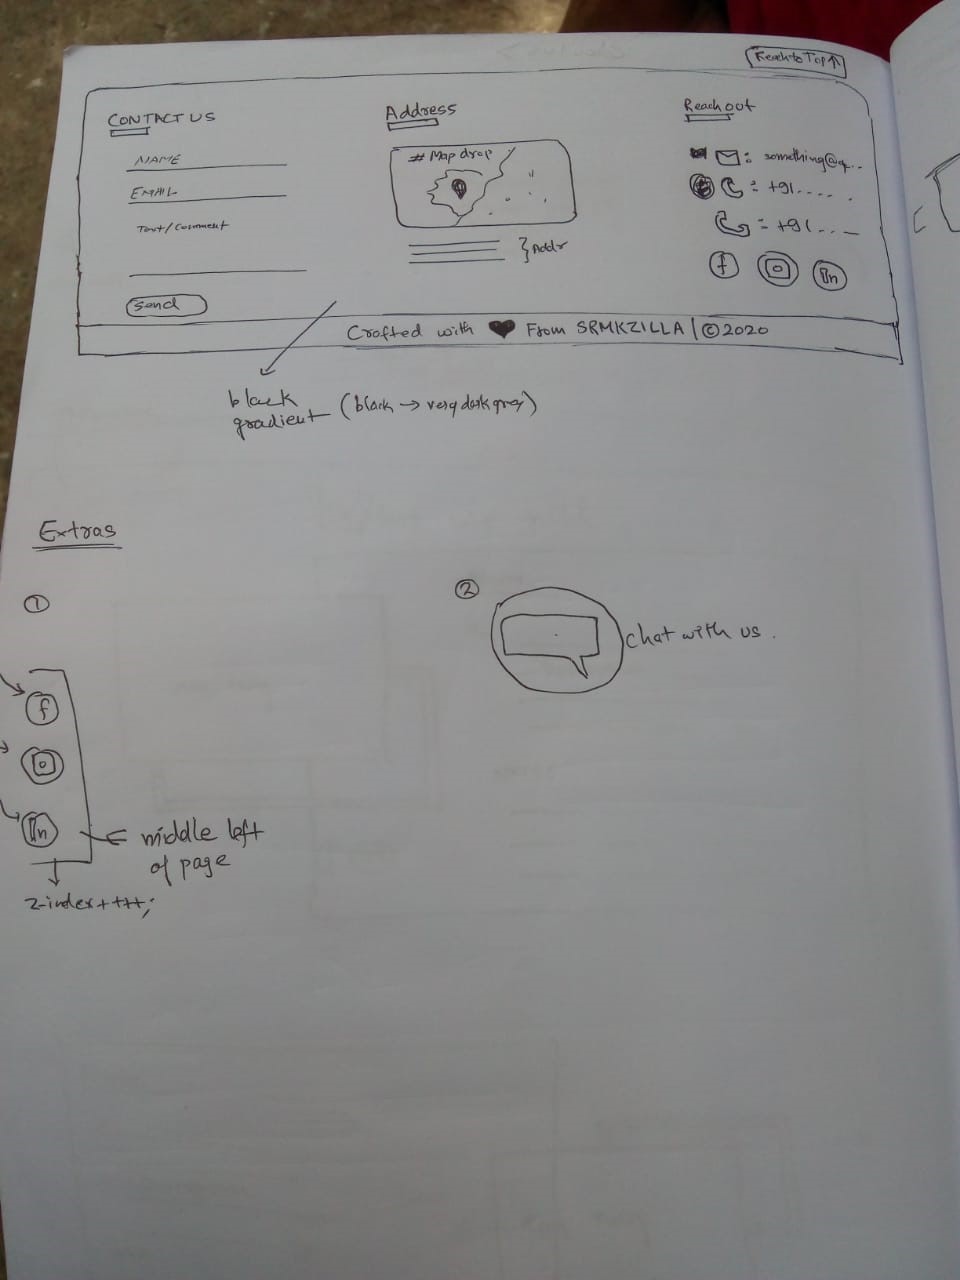 Reach to Top ↑
CONTACT US
NAME
EMAIL
Text/Comment
Send
Address
# Map drop
} Addr
Reach out
: something@g...
: +91.....
= +91...
f
in
Crafted with ♥ From SRMKZILLA | © 2020
black
gradient (black → very dark grey)
Extras
①
f
in
middle left
of page
z-index++++;
②
chat with us.